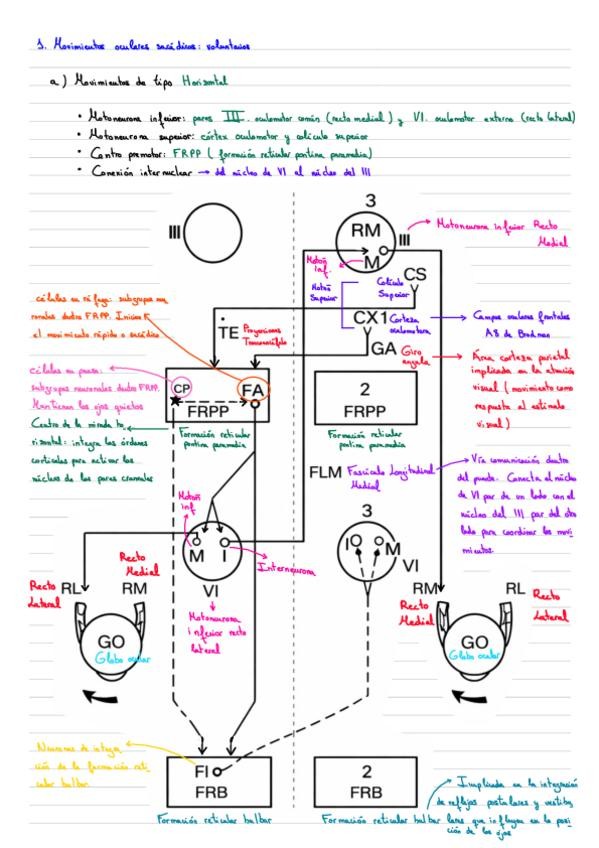 1. Movimientos oculares sacádicos: voluntarios
a) Movimientos de tipo Horizontal
• Motoneurona inferior: pares III. oculomotor común (recto medial) y VI. oculomotor externo (recto lateral)
• Motoneurona superior: córtex oculomotor y colículo superior
• Centro premotor: FRPP (formación reticular pontina paramedia)
• Conexión internuclear → del núcleo de VI al núcleo del III
III
3
RM
M
III
Motoneurona inferior Recto
Medial
Motoñ
inf.
Motoñ
Superior
CS
Colículo
Superior
CX1
Corteza
oculomotora
Campos oculares frontales
A8 de Brodman
GA
Giro
angula
Área corteza parietal
implicada en la atención
visual (movimiento como
respuesta al estímulo
visual)
TE
Proyecciones
células en ráfaga: subgrupos neu
ronales dentro FRPP. Inician
el movimiento rápido o sacádico
células en pausa:
subgrupos neuronales dentro FRPP.
Mantienen los ojos quietos
Centro de la mirada ho
rizontal: integra las órdenes
corticales para activar los
núcleos de los pares craneales
CP
FA
FRPP
Formación reticular
pontina paramedia
2
FRPP
Formación reticular
pontina paramedia
FLM
Fascículo Longitudinal
Medial
Vía comunicación dentro
del puente. Conecta el núcleo
de VI par de un lado con el
núcleo del III par del otro
lado para coordinar los movi
mientos.
Motoñ
inf
M
I
VI
Interneurona
Motoneurona
inferior recto
lateral
3
I
M
VI
Recto
Lateral
RL
Recto
Medial
RM
GO
Globo ocular
RM
Recto
Medial
RL
Recto
Lateral
GO
Globo ocular
Neuronas de integra
ción de la formación reti
cular bulbar
FI
FRB
Formación reticular bulbar
2
FRB
Formación reticular bulbar
Implicada en la integración
de reflejos posturales y vestibu
lares que influyen en la posi
ción de los ojos